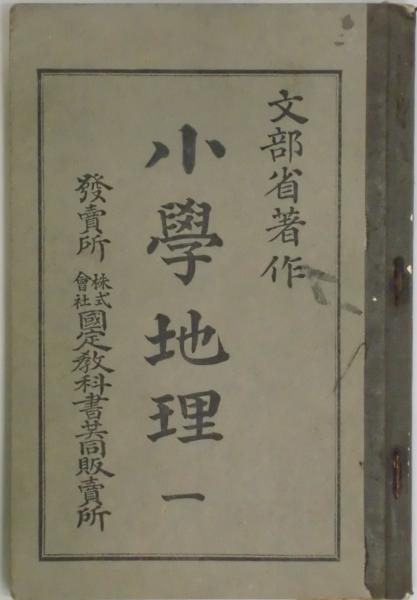 文部省著作
小學地理 一
發賣所 株式會社國定教科書共同販賣所